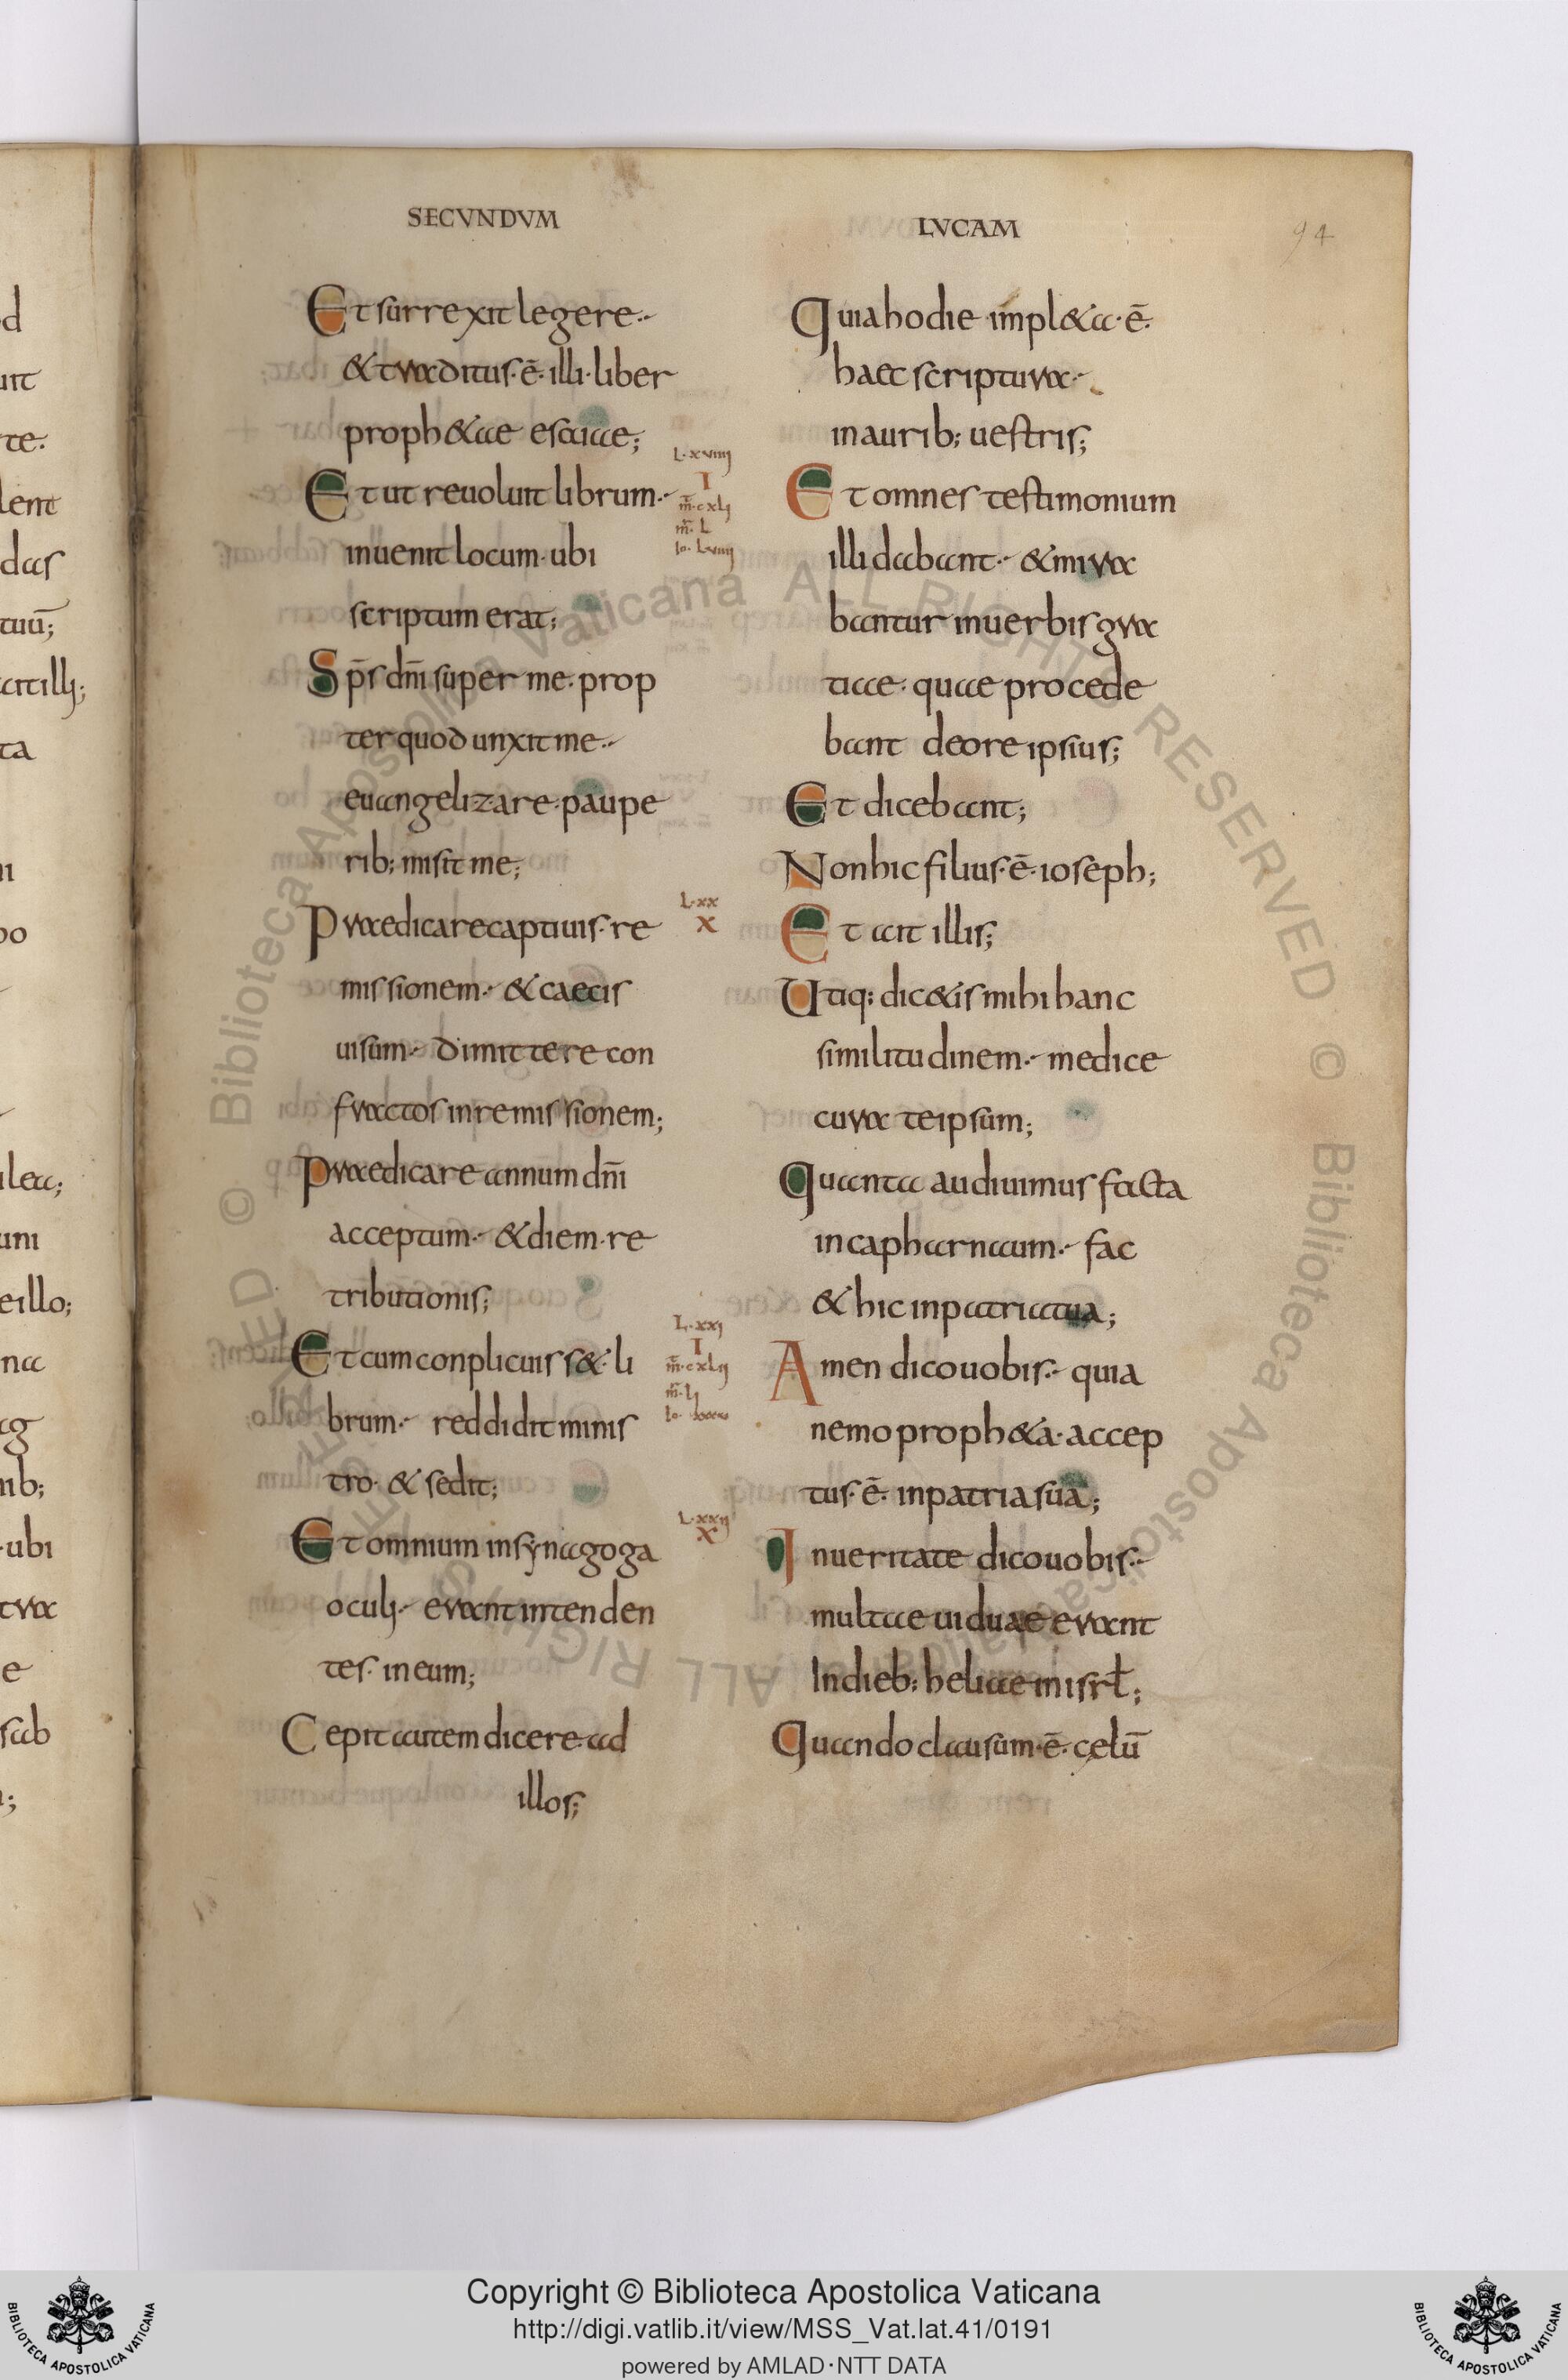 SECVNDVM
Et surrexit legere·
& traditus· ē· illi· liber
proph&ae esaiae;
Et ut reuoluit librum·
inuenit locum· ubi
scriptum erat;
Sp̄s dn̄i super me· prop
ter quod unxit me·
euangelizare· paupe
rib; misit me;
Praedicare captiuis· re
missionem· & caecis
uisum· dimittere con
fractos in remissionem;
Praedicare annum dn̄i
acceptum· & diem· re
tributionis;
Et cum conplicuiss&· li
brum· reddidit minis
tro· & sedit;
Et omnium in synagoga
oculi· erant intenden
tes· in eum;
Cepit autem dicere ad
illos;
L·xviiii
I
m̄·cxli
m̄·L
Io·Lviiii
L·xx
x
L·xxi
I
m̄·cxlii
m̄·li
L·xxii
x
LVCAM
94
Quia hodie impl&a· ē·
haec scriptura·
in aurib; uestris;
Et omnes testimonium
illi dabant· & mira
bantur in uerbis gra
tiae· quae procede
bant de ore ipsius;
Et dicebant;
Non hic filius· ē· ioseph;
Et ait illis;
Utiq; dic&is mihi hanc
similitudinem· medice
cura teipsum;
Quanta audiuimus facta
in capharnaum· fac
& hic in patria tua;
Amen dico uobis· quia
nemo proph&a· accep
tus· ē· in patria sua;
In ueritate dico uobis·
multae uiduae erant
In dieb; heliae in isrł;
Quando clausum· ē· cęlū
Copyright © Biblioteca Apostolica Vaticana
http://digi.vatlib.it/view/MSS_Vat.lat.41/0191
powered by AMLAD·NTT DATA
BIBLIOTECA APOSTOLICA VATICANA
BIBLIOTECA APOSTOLICA VATICANA